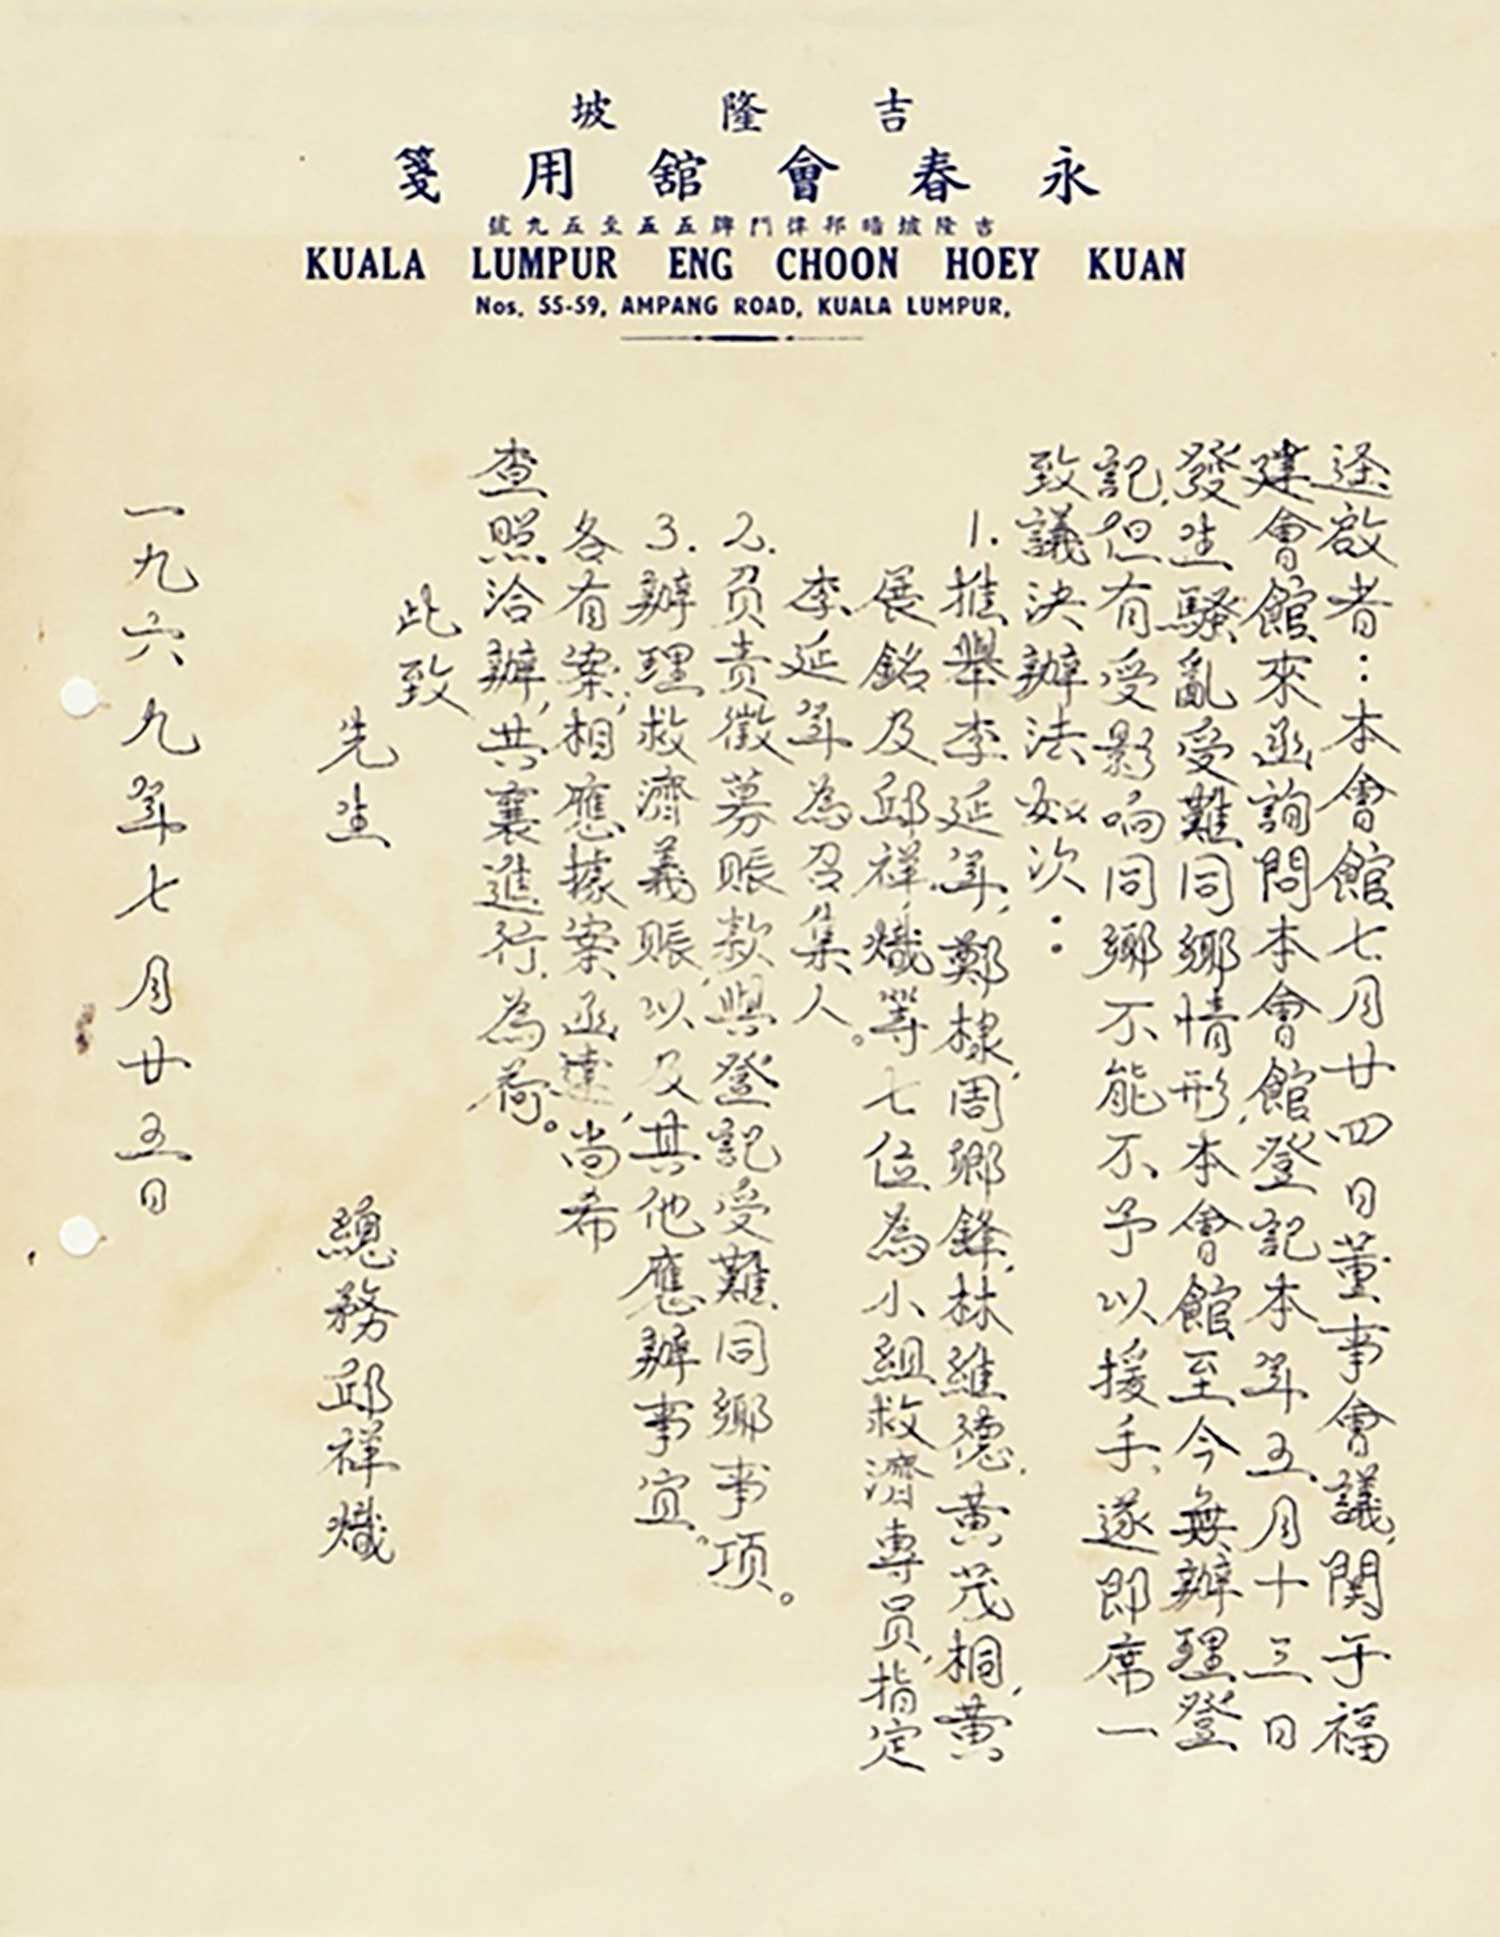 吉隆坡
永春會舘用箋
吉隆坡暗邦律門牌五五至五九號
KUALA LUMPUR ENG CHOON HOEY KUAN
Nos. 55-59, AMPANG ROAD, KUALA LUMPUR,
迳啟者：本會館七月廿四日董事會議，関于福
建會館來函詢問本會館登記本年五月十三日
發生騷亂受難同鄉情形，本會館至今無辦理登
記，但有受影响同鄉不能不予以援手，遂即席一
致議決辦法如次：
1.推舉李延年，鄭棣，周鄉鋒，林維德，黃茂桐，黃
展銘及邱祥熾等七位為小組救濟專員，指定
李延年為召集人。
2.负责徵募賬款與登記受難同鄉事项。
3.辦理救濟義賬，以及其他應辦事宜。
各有案，相應據案函達，尚希
查照洽辦，共襄進行，為荷。
此致
先生
總務邱祥熾
一九六九年七月廿五日